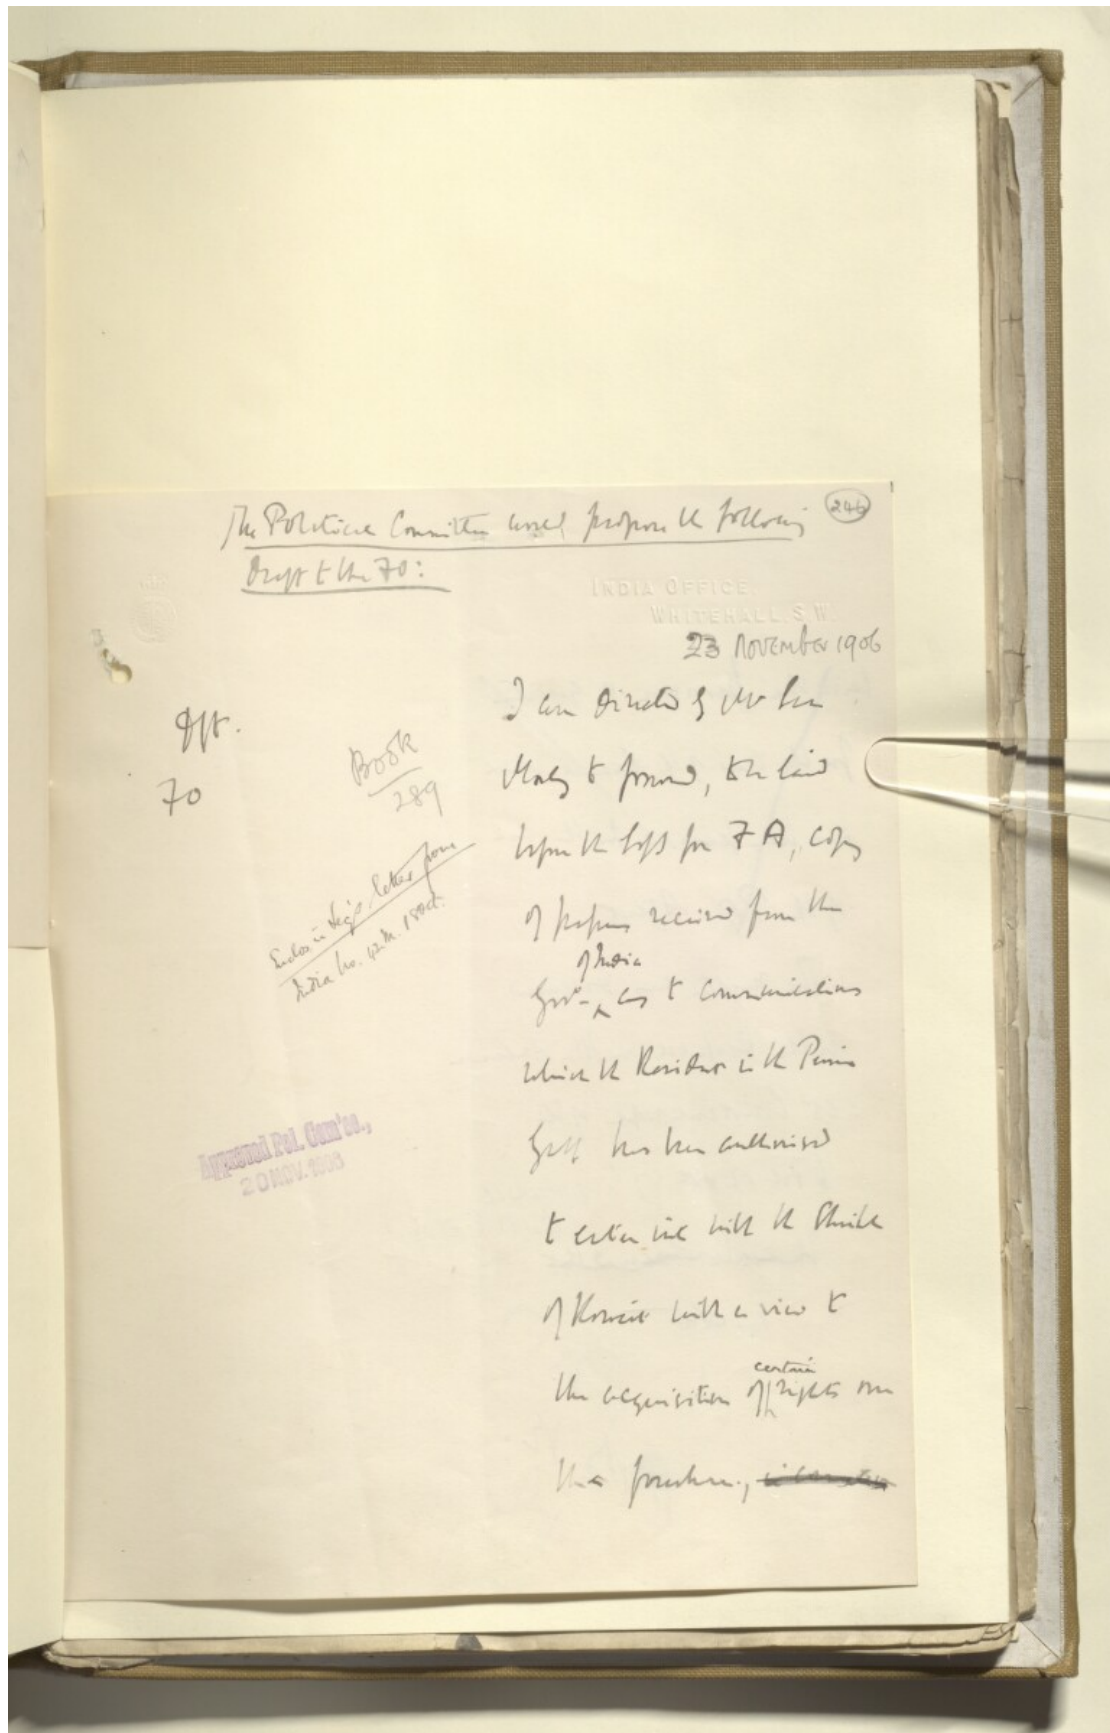 The Political Committee would propose the following
Draft to the FO:
246
INDIA OFFICE,
WHITEHALL, S.W.
23 November 1906
Dft.
FO
Book
289
Enclos in Sec'y's letter from
India No. 42 M. 18 Oct.
Approved Pol. Com'ee.,
20 NOV. 1906
I am directed by Mr Sec
Morley to forward, to be laid
before the SofS for FA, copy
of papers received from the
of India
Govt. as to communications
which the Resident in the Persian
Gulf has been authorised
to enter into with the Sheikh
of Koweit with a view to
certain
the acquisition of rights over
the foreshore,